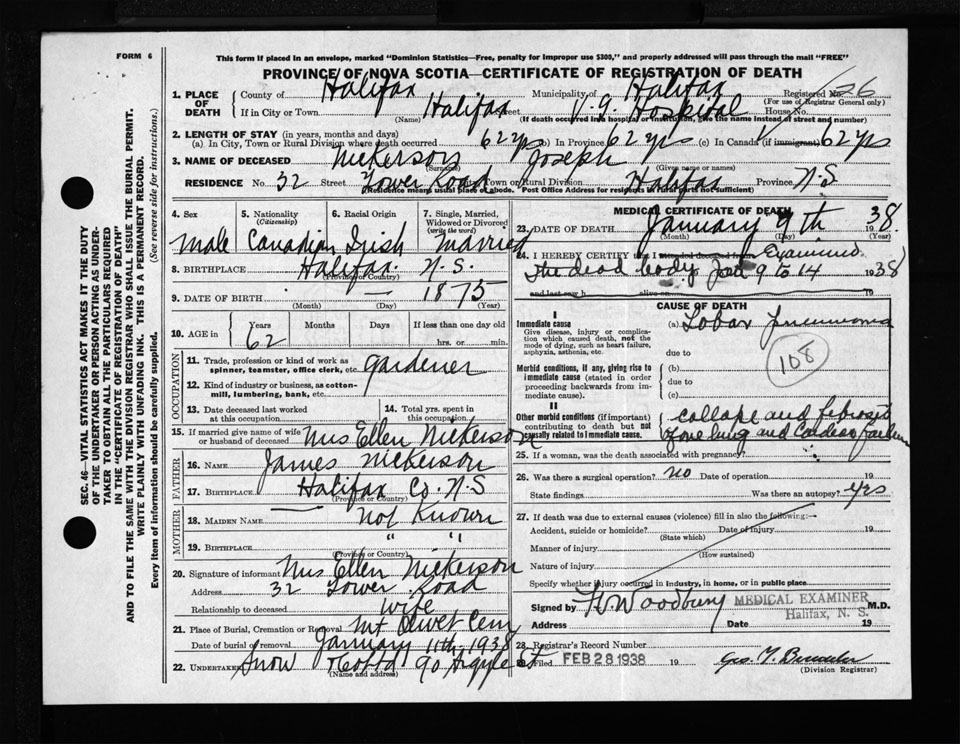 FORM 6
This form if placed in an envelope, marked "Dominion Statistics—Free, penalty for improper use $300," and properly addressed will pass through the mail "FREE"
PROVINCE OF NOVA SCOTIA—CERTIFICATE OF REGISTRATION OF DEATH
SEC. 46—VITAL STATISTICS ACT MAKES IT THE DUTY
OF THE UNDERTAKER OR PERSON ACTING AS UNDER-
TAKER TO OBTAIN ALL THE PARTICULARS REQUIRED
IN THE "CERTIFICATE OF REGISTRATION OF DEATH"
AND TO FILE THE SAME WITH THE DIVISION REGISTRAR WHO SHALL ISSUE THE BURIAL PERMIT.
WRITE PLAINLY WITH UNFADING INK. THIS IS A PERMANENT RECORD.
Every item of information should be carefully supplied. (See reverse side for instructions.)
1. PLACE OF DEATH
County of Halifax Municipality of Halifax Registered No. 26
(For use of Registrar General only)
If in City or Town Halifax Street V. G. Hospital House No.
(Name) (If death occurred in a hospital or institution, give the name instead of street and number)
2. LENGTH OF STAY (in years, months and days)
(a) In City, Town or Rural Division where death occurred 62 yrs (b) In Province 62 yrs (c) In Canada (if immigrant) 62 yrs
3. NAME OF DECEASED Nickerson Joseph
(Surname) (Given name or names)
RESIDENCE No. 32 Street Tower Road City, Town or Rural Division Halifax Province N.S
(Residence means usual place of abode. Post Office Address for residents in rural parts not sufficient)
4. Sex 5. Nationality (Citizenship) 6. Racial Origin 7. Single, Married, Widowed or Divorced (write the word)
Male Canadian Irish Married
8. BIRTHPLACE Halifax. N.S.
(Province or Country)
9. DATE OF BIRTH 1875
(Month) (Day) (Year)
10. AGE in Years Months Days If less than one day old
62 hrs. or min.
OCCUPATION
11. Trade, profession or kind of work as spinner, teamster, office clerk, etc. gardener
12. Kind of industry or business, as cotton-mill, lumbering, bank, etc.
13. Date deceased last worked at this occupation 14. Total yrs. spent in this occupation
15. If married give name of wife or husband of deceased Mrs Ellen Nickerson
FATHER
16. Name James Nickerson
17. Birthplace Halifax Co. N.S
(Province or Country)
MOTHER
18. Maiden Name Not Known
19. Birthplace " "
(Province or Country)
20. Signature of informant Mrs Ellen Nickerson
Address 32 Tower Road
Relationship to deceased wife
21. Place of Burial, Cremation or Removal Mt Olivet Cem
Date of burial or removal January 11th, 1938
22. UNDERTAKER Snow 90 Argyle St
(Name and address)
MEDICAL CERTIFICATE OF DEATH
23. DATE OF DEATH January 9th 1938.
(Month) (Day) (Year)
24. I HEREBY CERTIFY that I attended deceased from Examined
The dead body Jan 9 to 14 1938
and last saw h alive on 19
CAUSE OF DEATH
I
Immediate cause (a) Lobar Pneumonia
Give disease, injury or complication which caused death, not the mode of dying, such as heart failure, asphyxia, asthenia, etc.
due to
108
Morbid conditions, if any, giving rise to immediate cause (stated in order proceeding backwards from immediate cause).
(b)
due to
(c)
II
Other morbid conditions (if important) contributing to death but not causally related to immediate cause.
collapse and fibrosis
of one lung and Cardiac failure
25. If a woman, was the death associated with pregnancy?
26. Was there a surgical operation? no Date of operation 19
State findings Was there an autopsy? yes
27. If death was due to external causes (violence) fill in also the following:—
Accident, suicide or homicide? Date of injury 19
(State which)
Manner of injury
(How sustained)
Nature of injury
Specify whether injury occurred in industry, in home, or in public place
Signed by H. Woodbury MEDICAL EXAMINER M.D.
Halifax, N. S.
Address Date 19
28. Registrar's Record Number
Filed FEB 28 1938 19
(Division Registrar)